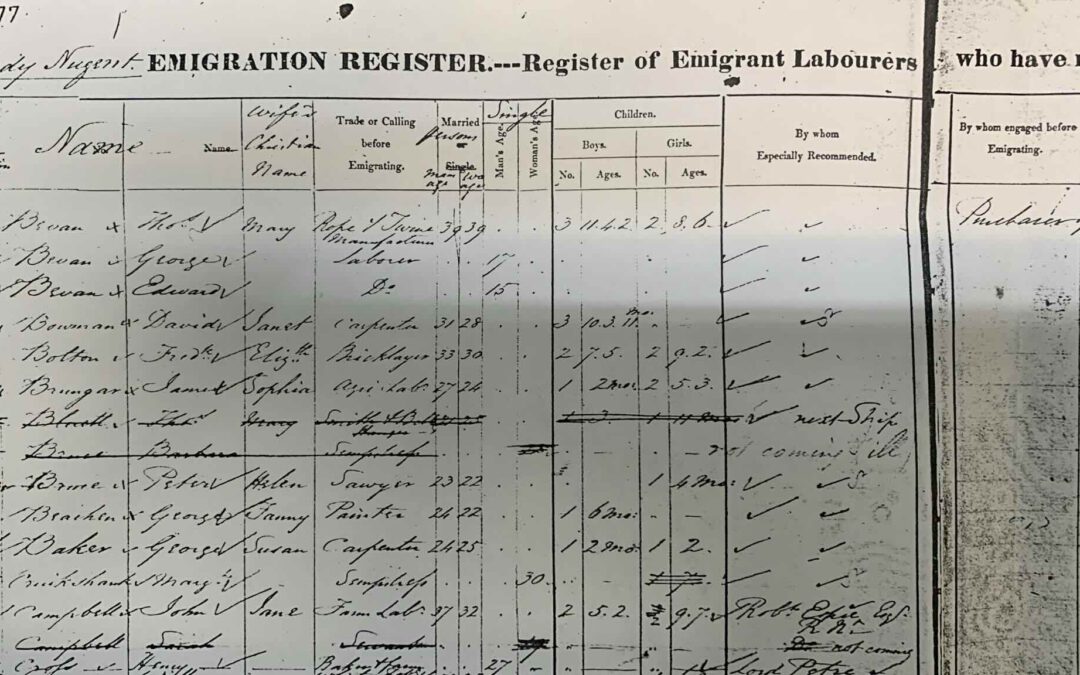 77
dy Nugent EMIGRATION REGISTER.---Register of Emigrant Labourers who have
Name Name. Wife's Christian Name Trade or Calling before Emigrating. Married persons or Single. Man age Single Man's Age. Woman's Age. Children. Boys. No. Ages. Girls. No. Ages. By whom Especially Recommended. By whom engaged before Emigrating.
Bevan x Thos. Mary Rope & Twine Manufacturer 39 39 3 11.4.2 2 8.6.
Bevan x George laborer 17
Bevan x Edward Do 15
Bowman x David Janet Carpenter 31 28 3 10.3.11 mo.
Bolton Fredk. Elizth. Bricklayer 33 30 2 7.5. 2 9.2.
Brungar x James Sophia Agri. Labr. 27 24 1 2 mos 2 5.3.
Thos. Mary 1 3. 1 11 mos next Ship
Bruce Barbara Sempstress not coming ill
Bruce x Peter Helen Sawyer 23 22 1 4 mos
George Fanny Painter 24 22 1 6 mos
Baker George Susan Carpenter 24 25 1 2 mos 1 2.
Cruikshank Margt. Sempstress 30
Campbell x John Jane Farm Labr. 37 32 2 5.2. 9.7. Robt. Esq.
Campbell Sarah Servant Do not coming
Cross Henry 27 Lord Petre